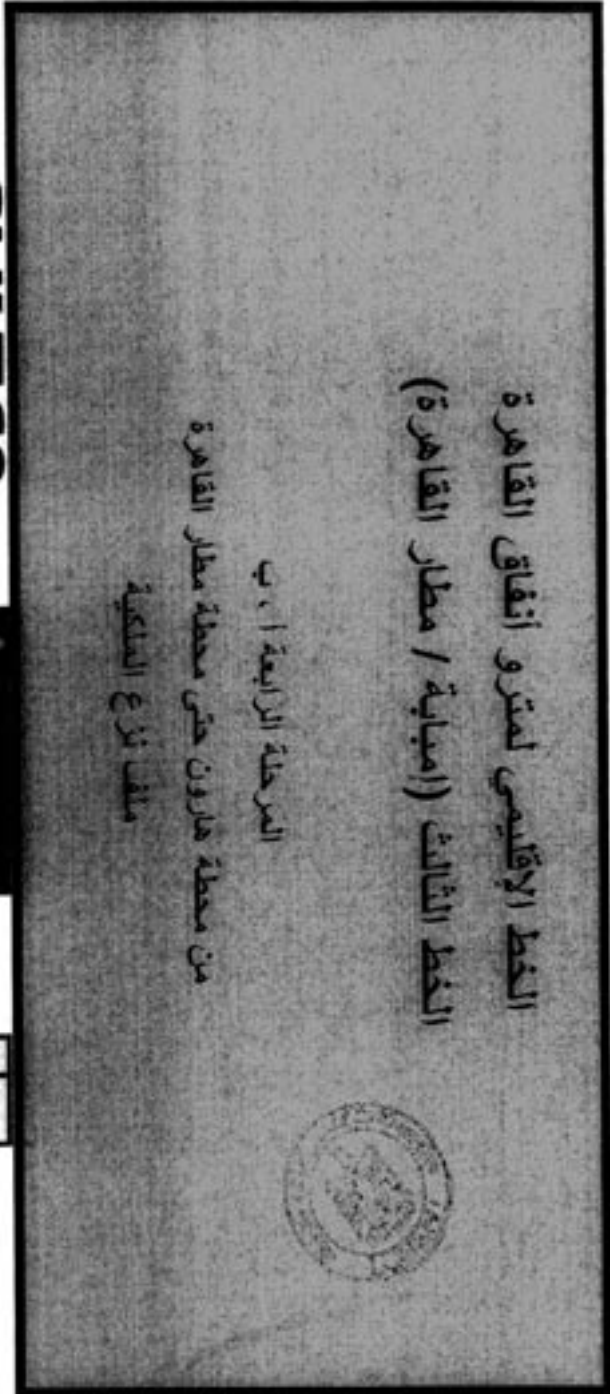 الخط الإقليمي لمترو أنفاق القاهرة
الخط الثالث (إمبابة / مطار القاهرة)
المرحلة الرابعة أ ، ب
من محطة هارون حتى محطة مطار القاهرة
ملف نزع الملكية